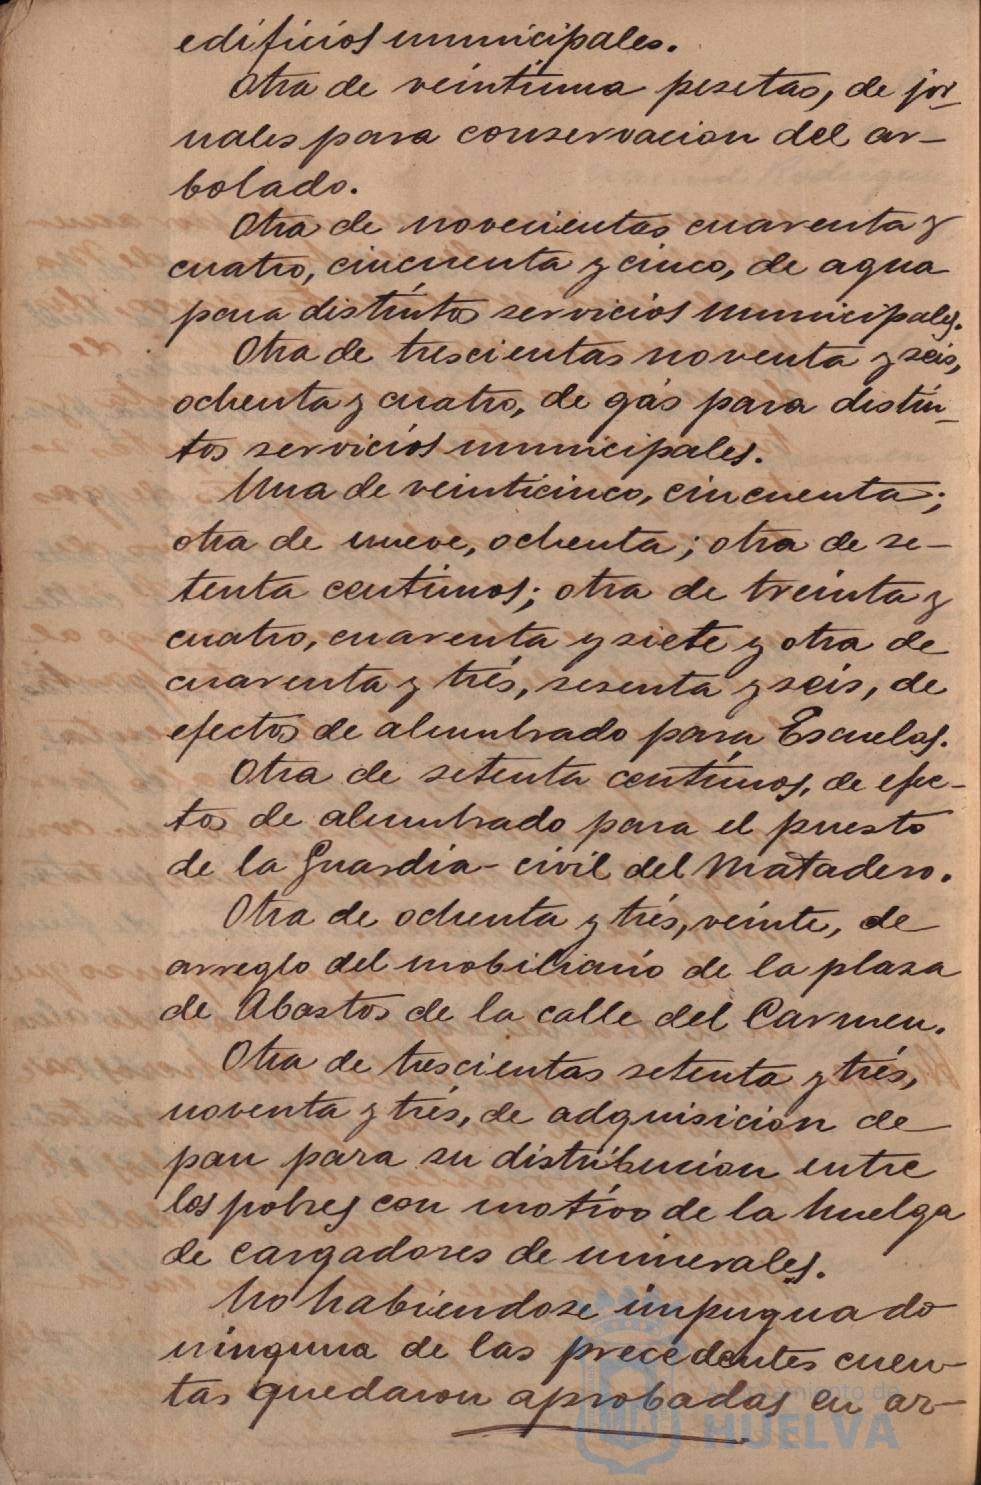 edificios municipales.
Otra de veintiuna pesetas, de jor-
nales para conservacion del ar-
bolado.
Otra de novecientas cuarenta y
cuatro, cincuenta y cinco, de agua
para distintos servicios municipales.
Otra de trescientas noventa y seis,
ochenta y cuatro, de gás para distin-
tos servicios municipales.
Una de veinticinco, cincuenta;
otra de nueve, ochenta; otra de se-
tenta centimos; otra de treinta y
cuatro, cuarenta y siete y otra de
cuarenta y trés, sesenta y seis, de
efectos de alumbrado para Escuelas.
Otra de setenta centimos, de efec-
tos de alumbrado para el puesto
de la Guardia-civil del Matadero.
Otra de ochenta y trés, veinte, de
arreglo del mobiliario de la plaza
de Abastos de la calle del Carmen.
Otra de trescientas setenta y trés,
noventa y trés, de adquisición de
pan para su distribucion entre
los pobres con motivo de la huelga
de cargadores de minerales.
No habiendose impugnado
ninguna de las precedentes cuen-
tas quedaron aprobadas en ar-
Ayuntamiento de
HUELVA